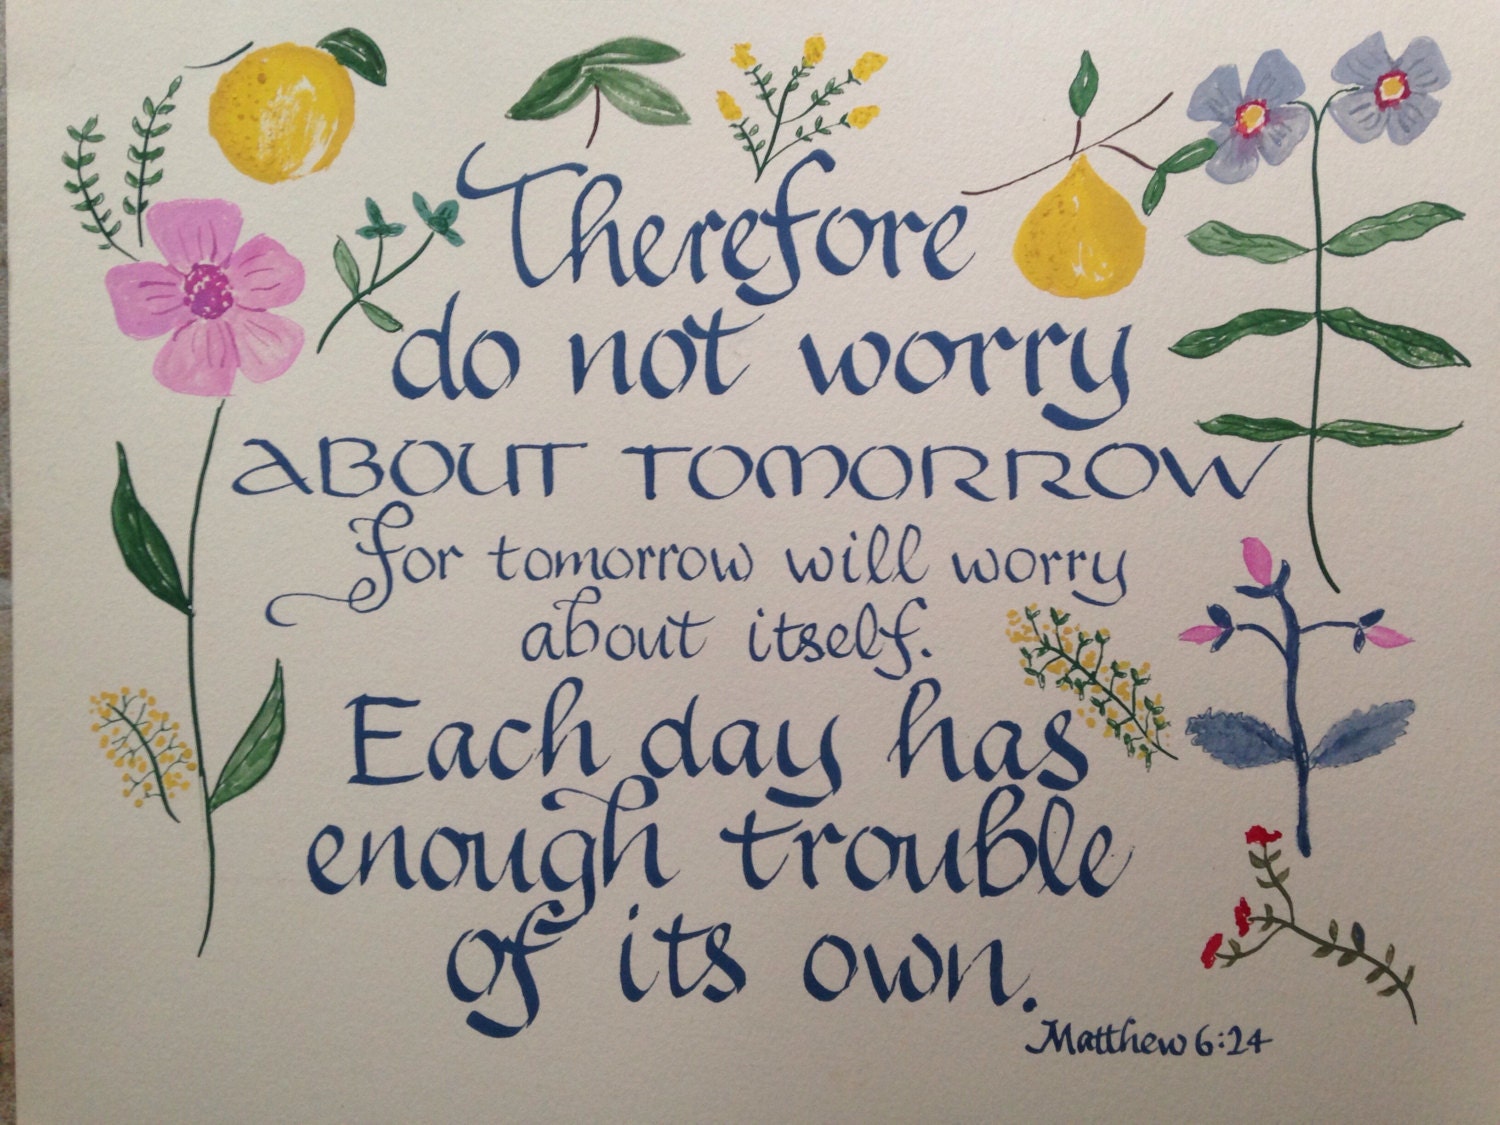 Therefore
do not worry
ABOUT TOMORROW
for tomorrow will worry
about itself.
Each day has
enough trouble
of its own.
Matthew 6:24